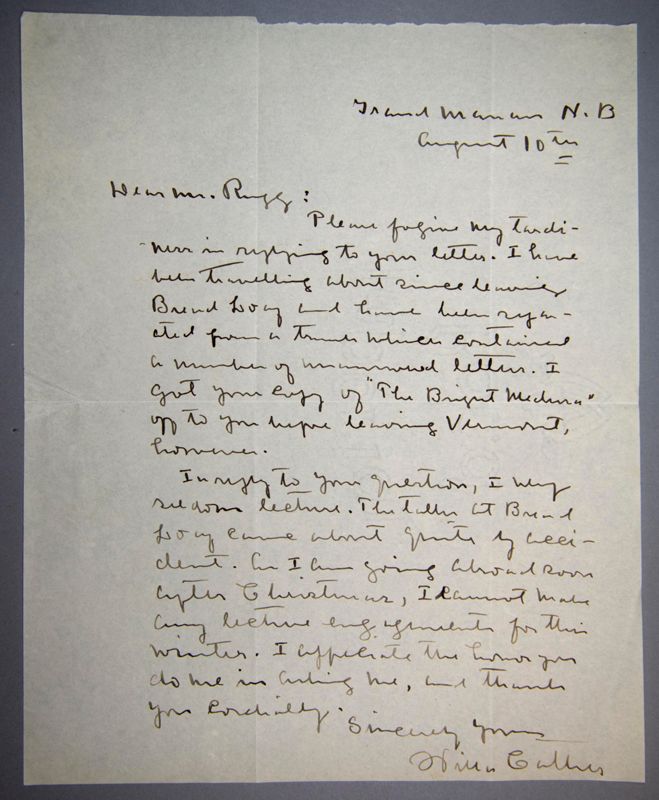 Grand Manan N.B
August 10th
Dear Mr. Rugg:
Please forgive my tardi-
ness in replying to your letter. I have
been travelling about since leaving
Bread Loaf and have been separ-
ated from a trunk which contained
a number of unanswered letters. I
got your copy of "The Bright Medusa"
off to you before leaving Vermont,
however.
In reply to your question, I very
seldom lecture. The talks at Bread
Loaf came about quite by acci-
dent. As I am going abroad soon
after Christmas, I cannot make
any lecture engagements for this
winter. I appreciate the honor you
do me in asking me, and thank
you cordially.
Sincerely yours
Willa Cather